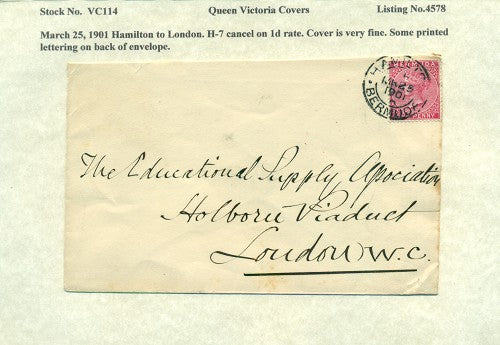 Stock No. VC114 Queen Victoria Covers Listing No.4578
March 25, 1901 Hamilton to London. H-7 cancel on 1d rate. Cover is very fine. Some printed
lettering on back of envelope.
BERMUDA
PENNY
MR 25
1901
BERMUDA
The Educational Supply Association
Holborn Viaduct
London W.C.